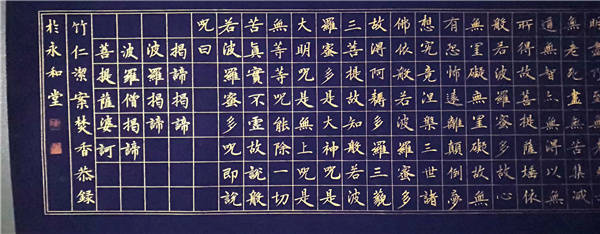 無老死盡無苦集滅
道無智亦無得以無
所得故菩提薩埵依
般若波羅蜜多故心
無罣礙無罣礙故無
有恐怖遠離顛倒夢
想究竟涅槃三世諸
佛依般若波羅蜜多
故得阿耨多羅三藐
三菩提故知般若波
羅蜜多是大神咒是
大明咒是無上咒是
無等等咒能除一切
苦真實不虛故說般
若波羅蜜多咒即說
咒曰
揭諦揭諦
波羅揭諦
波羅僧揭諦
菩提薩婆訶
竹仁潔案焚香恭錄
於永和堂